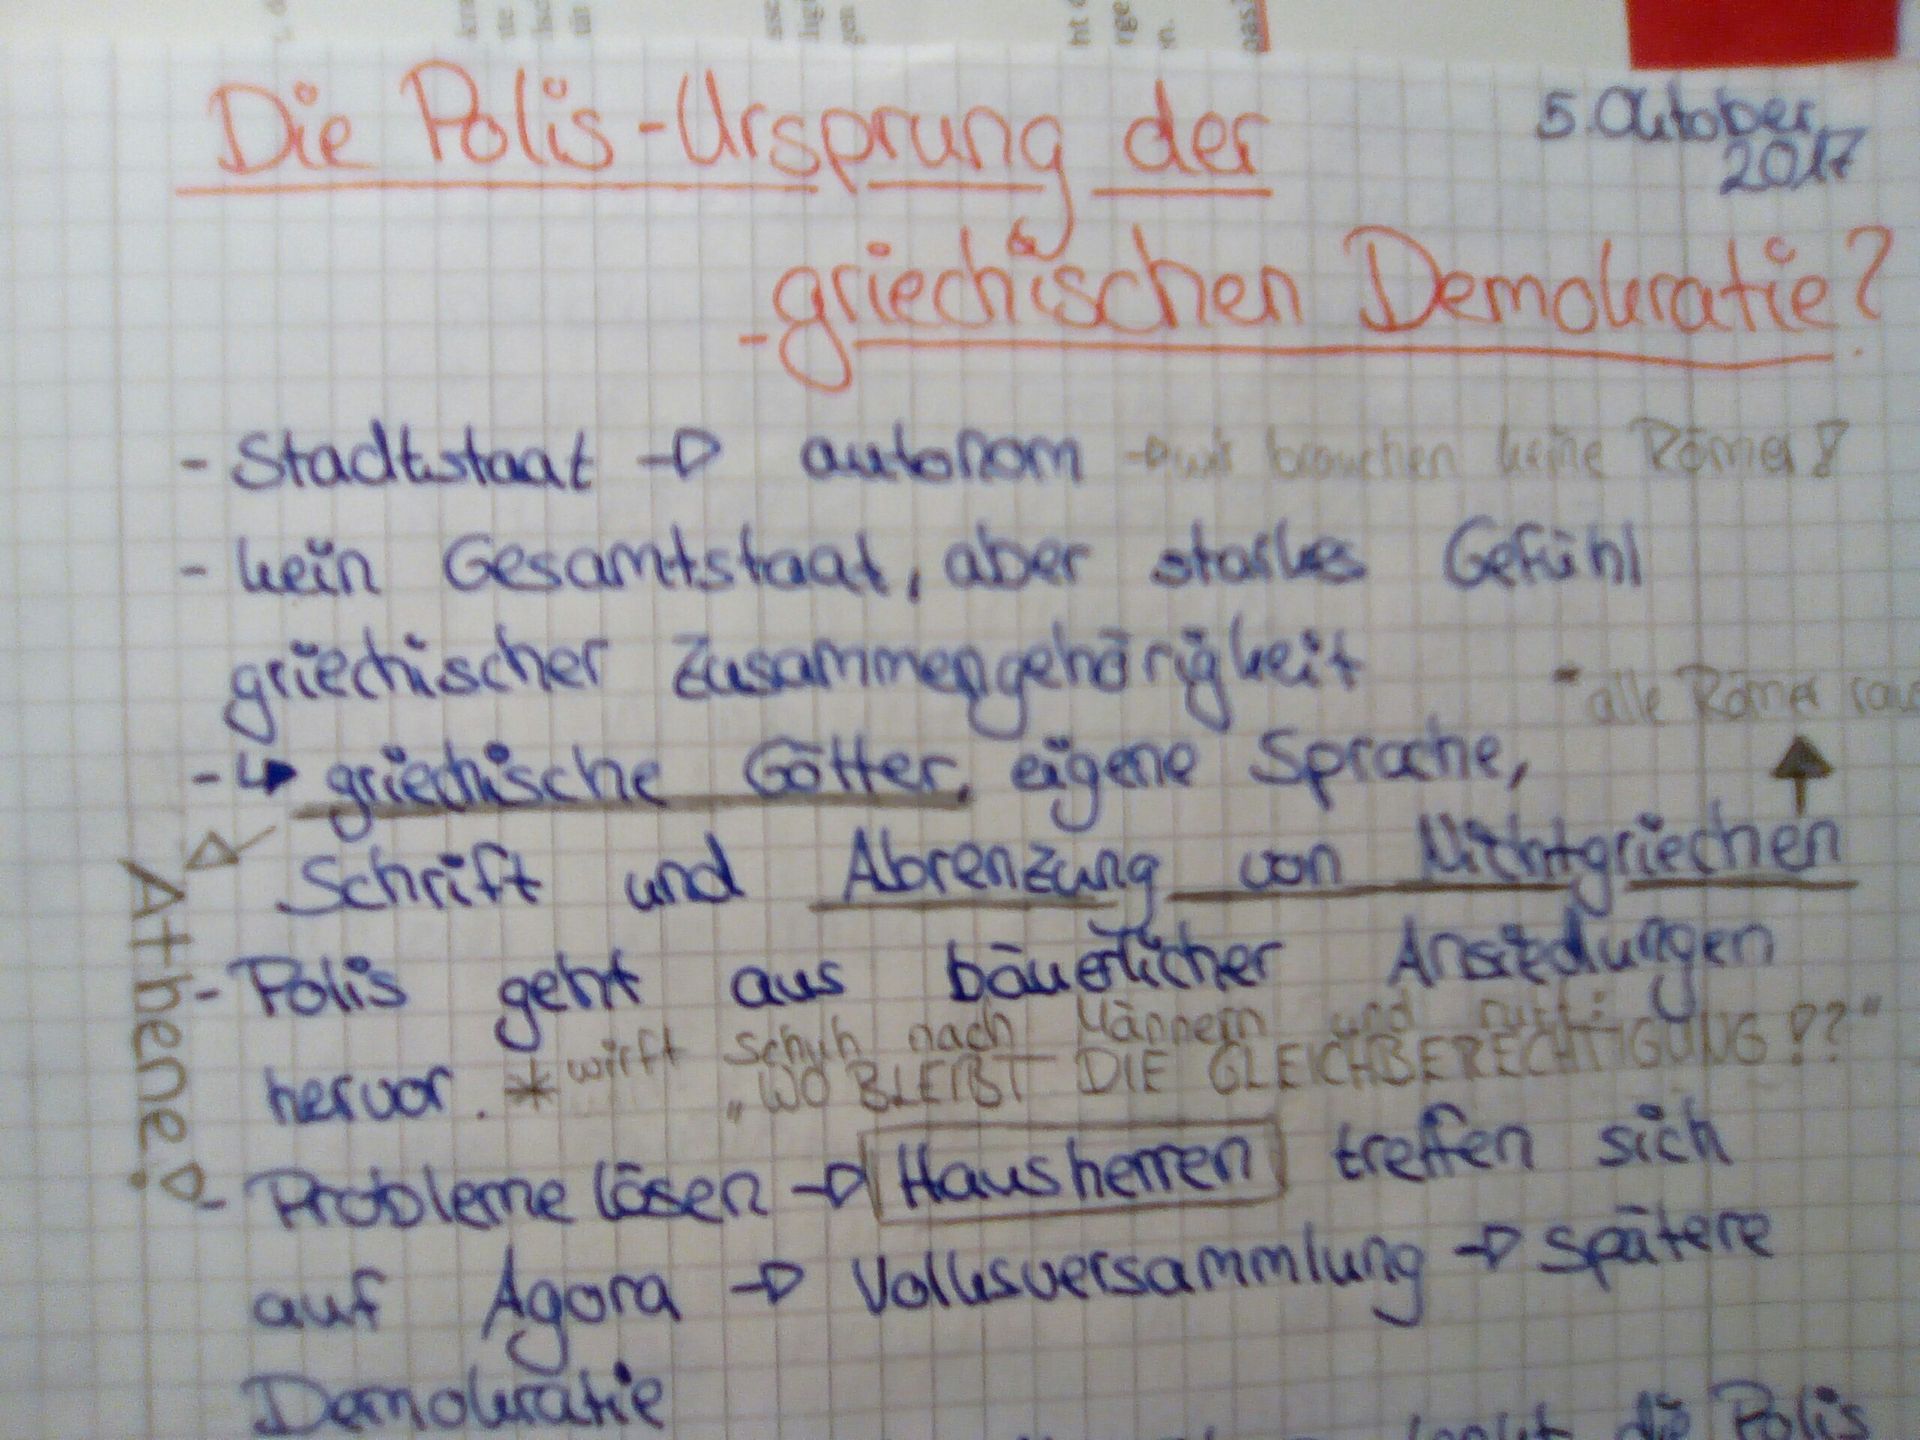 Die Polis - Ursprung der
5. Oktober
2017
- griechischen Demokratie?
- Stadtstaat → autonom → wir brauchen keine Römer!
- kein Gesamtstaat, aber starkes Gefühl
griechischer Zusammengehörigkeit
- alle Römer
- ↳ griechische Götter, eigene Sprache,
Schrift und Abrenzung von Nichtgriechen
Athene!
- Polis geht aus bäuerlicher Ansiedlungen
hervor. * wirft Schuh nach Männern und ruft:
„WO BLEIBT DIE GLEICHBERECHTIGUNG??"
- Probleme lösen → Hausherren treffen sich
auf Agora → Volksversammlung → spätere
Demokratie
die Polis